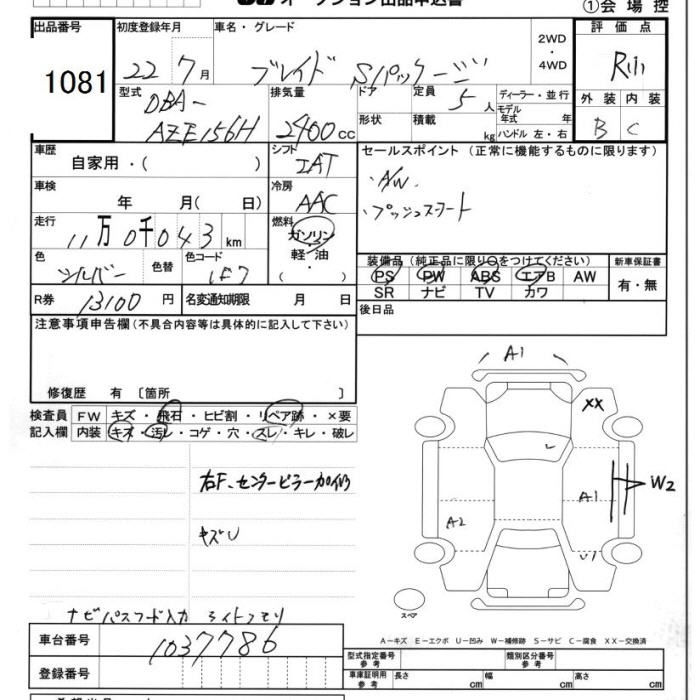 オークション出品申込書
①会場控
出品番号 1081
初度登録年月 22 7月
車名・グレード ブレイド Sパッケージ
2WD・4WD
評価点 R111
外装 B 内装 C
型式 DBA- AZE156H
排気量 2400cc
ドア 形状
定員 5人 積載 kg
ディーラー・並行
モデル年式 年
ハンドル 左・右
車歴 自家用・( )
シフト IAT
車検 年 月( 日)
冷房 AAC
走行 11万0千043km
燃料 ガソリン 軽油・
色 シルバー 色替 色コード 1F7
R券 13100円 名変通知期限 月 日
セールスポイント(正常に機能するものに限ります)
・A/W.
・プッシュスタート
装備品(純正品に限り○をつけてください)
PS PW ABS エアB AW
SR ナビ TV カワ
新車保証書 有・無
後日品
注意事項申告欄(不具合内容等は具体的に記入して下さい)
修復歴 有〔箇所 〕
検査員記入欄
FW キズ・飛石・ヒビ割・リペア跡・×要
内装 キズ・汚レ・コゲ・穴・スレ・キレ・破レ
右F、センターピラー
キズU
ナビパスワード入力
A1
XX
A1
W2
A2
U1
スペア
A-キズ E-エクボ U-凹み W-補修跡 S-サビ C-腐食 XX-交換済
車台番号 1037786
登録番号
型式指定番号 参考
類別区分番号 参考
車庫証明用 参考 長さ cm 幅 cm 高さ cm